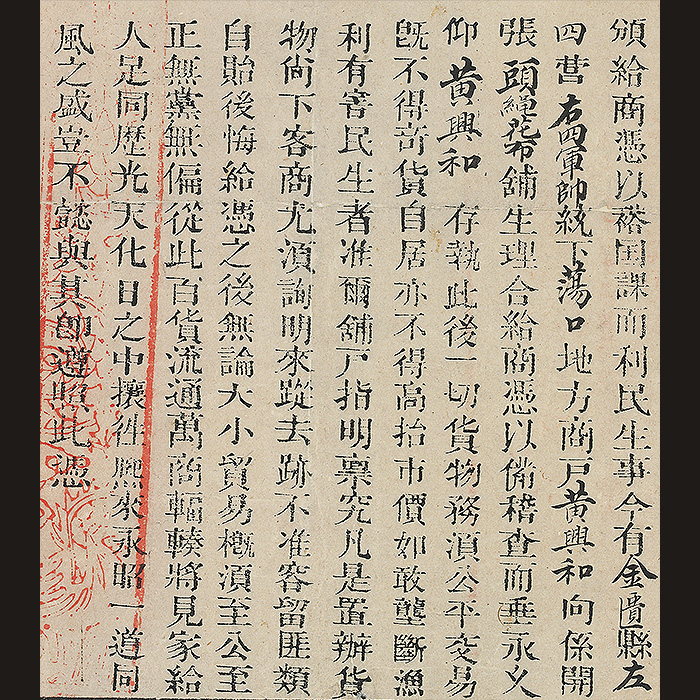 頒給商憑以裕囯課而利民生事今有金匱縣左
四营右四軍帥統下蕩口地方商戶黄興和向係開
張頭繩花布舖生理合給商憑以備稽查而垂永久
仰黄興和存執此後一切貨物務湏公平交易
旣不得奇貨自居亦不得高抬市價如敢壟斷漁
利有害民生者准爾舖戶指明稟究凡是置辦貨
物尙下客商尤湏詢明來蹤去跡不准容留匪類
自貽後悔給憑之後無論大小貿易槪湏至公至
正無黨無偏從此百貨流通萬商輻輳將見家給
人足同歷光天化日之中攘往熈來永昭一道同
風之盛豈不懿與其卽遵照此憑